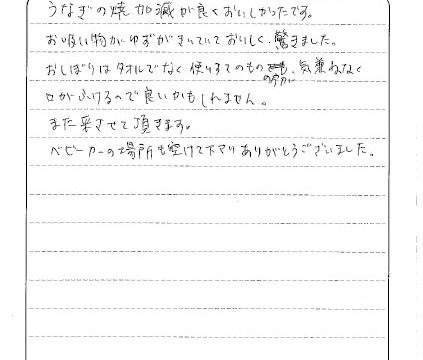 うなぎの焼加減が良くおいしかったです。
お吸い物がゆずがきいていておいしく、驚きました。
おしぼりはタオルでなく使いすてのもの の方が、気兼ねなく
口がふけるので良いかもしれません。
また来させて頂きます。
ベビーカーの場所も空けて下さりありがとうございました。